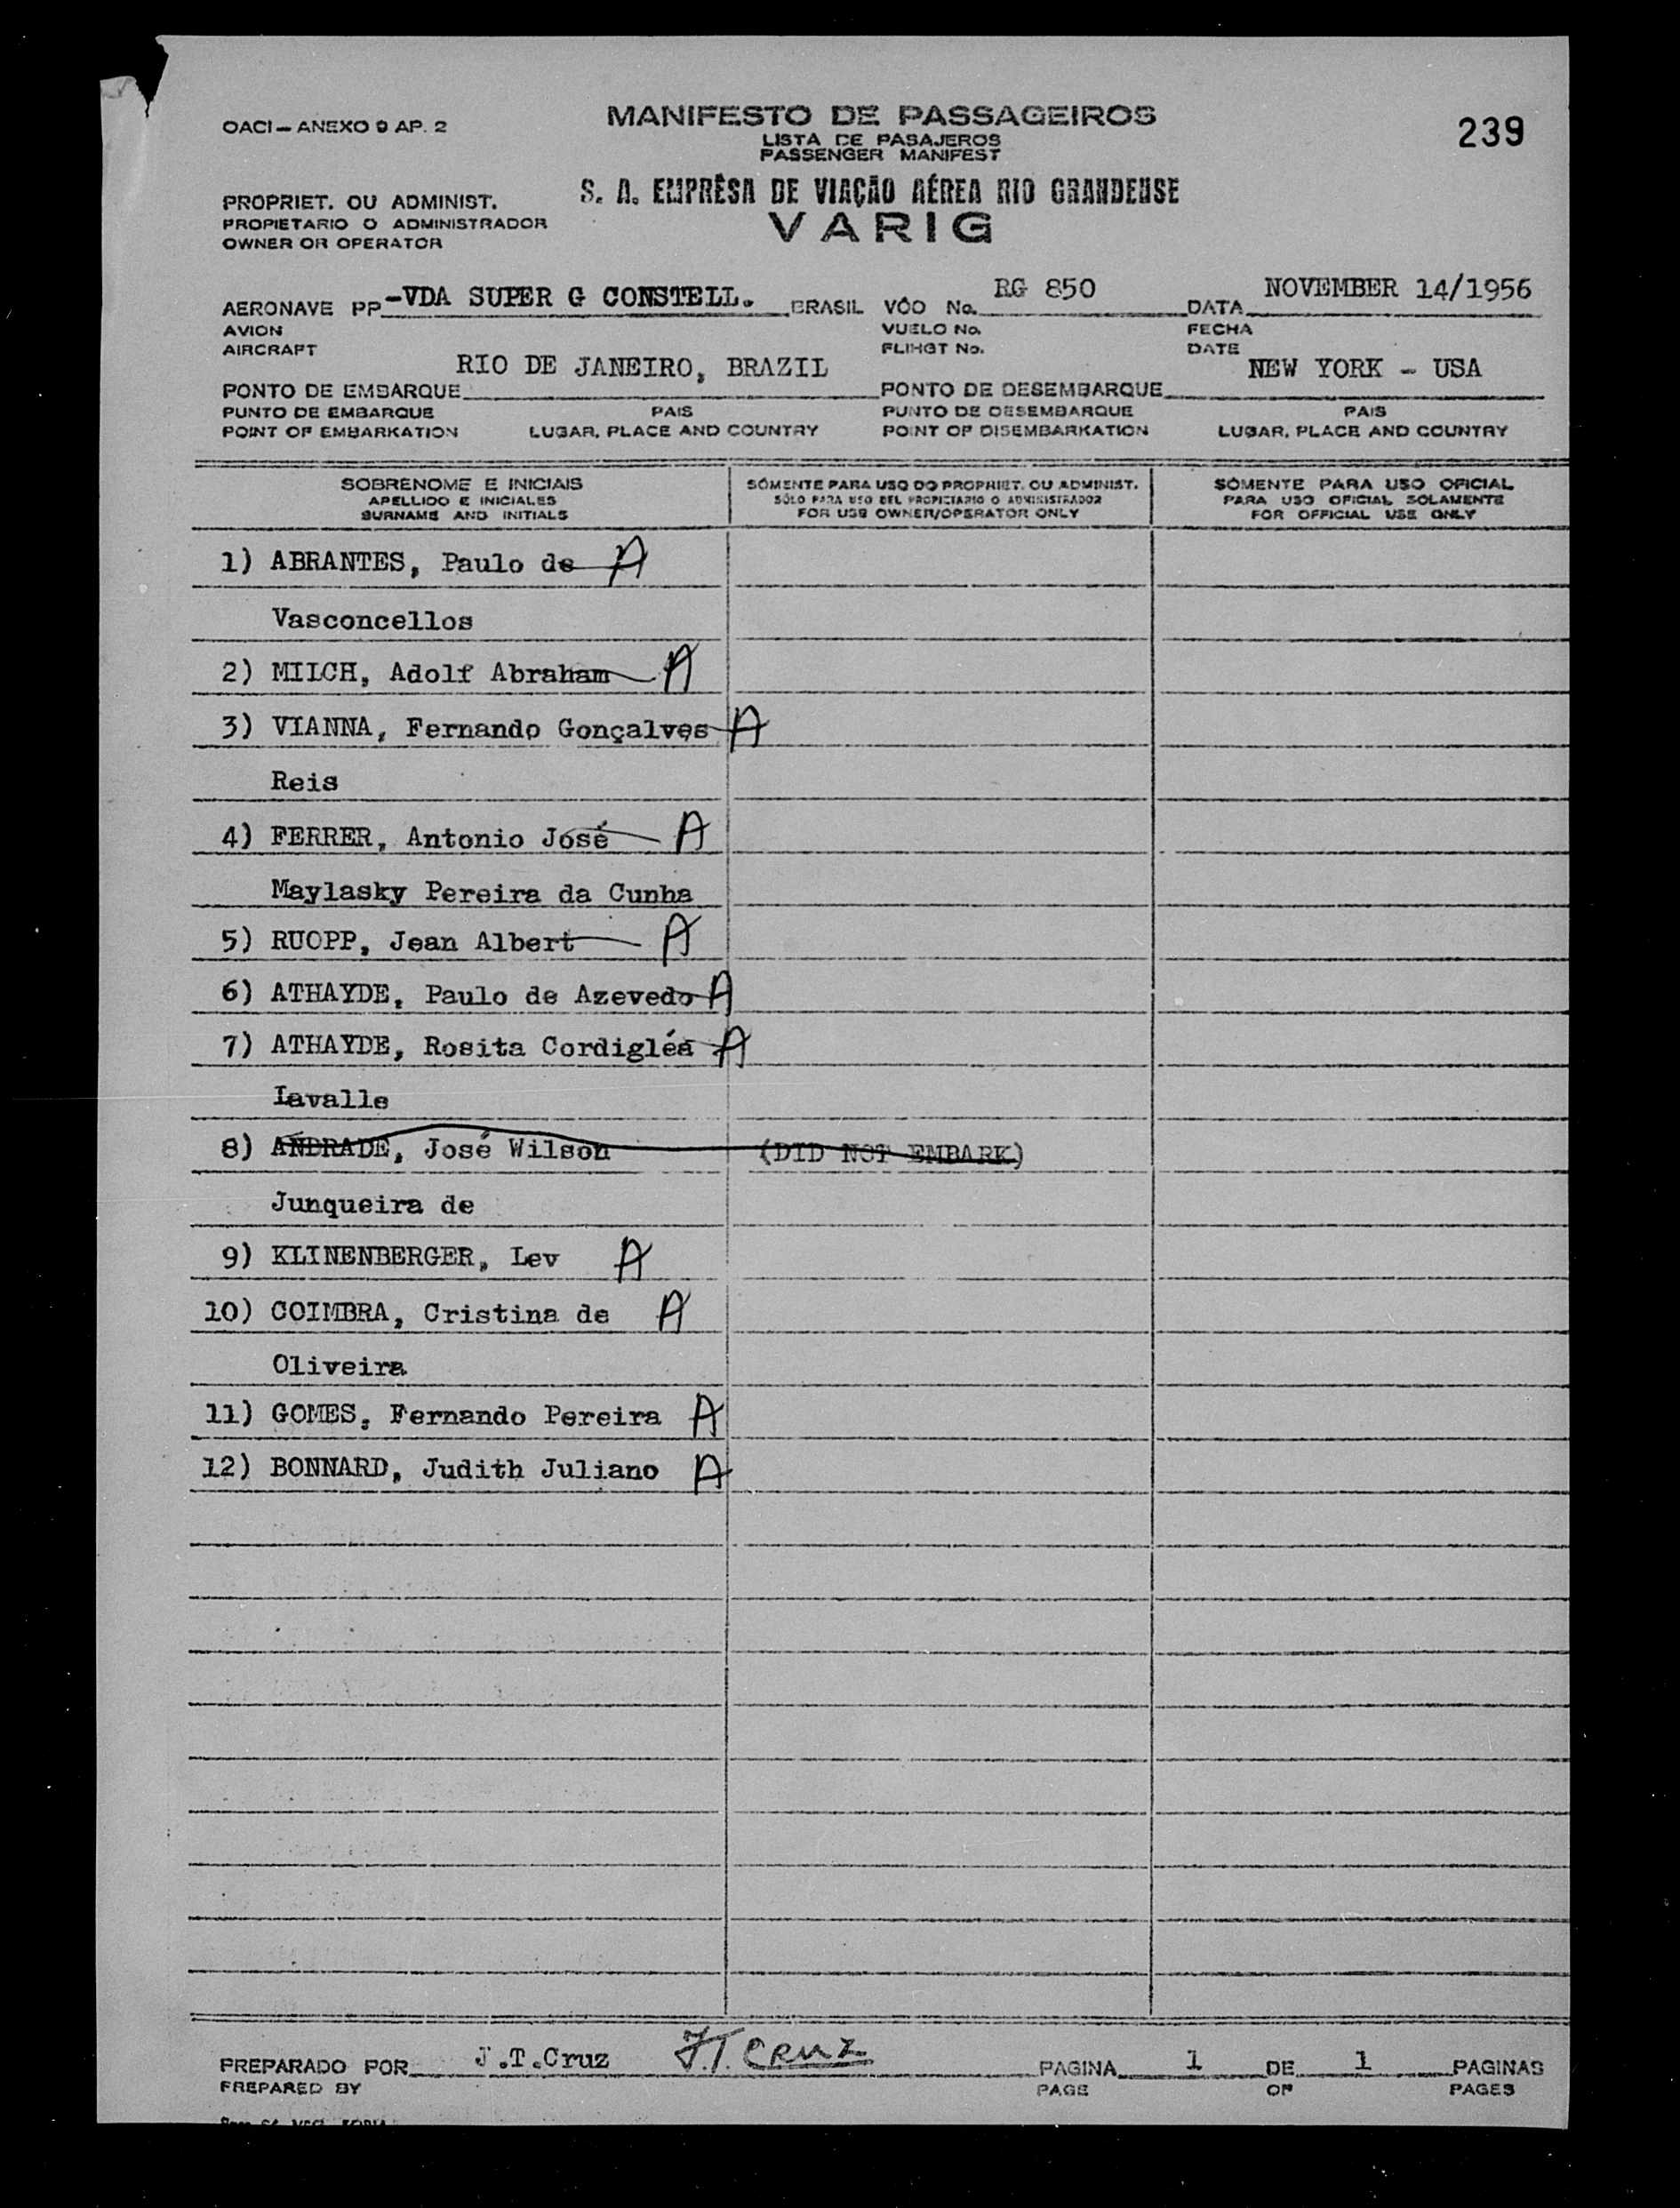 OACI — ANEXO 9 AP. 2
MANIFESTO DE PASSAGEIROS
LISTA DE PASAJEROS
PASSENGER MANIFEST
239
PROPRIET. OU ADMINIST.
PROPIETARIO O ADMINISTRADOR
OWNER OR OPERATOR
S. A. EMPRÊSA DE VIAÇÃO AÉREA RIO GRANDENSE
VARIG
AERONAVE PP -VDA SUPER G CONSTELL. BRASIL VÔO No. RG 850 DATA NOVEMBER 14/1956
AVION VUELO No. FECHA
AIRCRAFT FLIHGT No. DATE
PONTO DE EMBARQUE RIO DE JANEIRO, BRAZIL PONTO DE DESEMBARQUE NEW YORK - USA
PUNTO DE EMBARQUE PAIS PUNTO DE DESEMBARQUE PAIS
POINT OF EMBARKATION LUGAR, PLACE AND COUNTRY POINT OF DISEMBARKATION LUGAR, PLACE AND COUNTRY
SOBRENOME E INICIAIS SÓMENTE PARA USO DO PROPRIET. OU ADMINIST. SÓMENTE PARA USO OFICIAL
APELLIDO E INICIALES SÓLO PARA USO DEL PROPICIARIO O ADMINISTRADOR PARA USO OFICIAL SOLAMENTE
SURNAME AND INITIALS FOR USE OWNER/OPERATOR ONLY FOR OFFICIAL USE ONLY
1) ABRANTES, Paulo de A
Vasconcellos
2) MILCH, Adolf Abraham A
3) VIANNA, Fernando Gonçalves A
Reis
4) FERRER, Antonio José A
Maylasky Pereira da Cunha
5) RUOPP, Jean Albert A
6) ATHAYDE, Paulo de Azevedo A
7) ATHAYDE, Rosita Cordigléa A
Lavalle
8) ANDRADE, José Wilson (DID NOT EMBARK)
Junqueira de
9) KLINENBERGER, Lev A
10) COIMBRA, Cristina de A
Oliveira
11) GOMES, Fernando Pereira A
12) BONNARD, Judith Juliano A
PREPARADO POR J.T.Cruz J.T. Cruz PAGINA 1 DE 1 PAGINAS
PREPARED BY PAGE OF PAGES